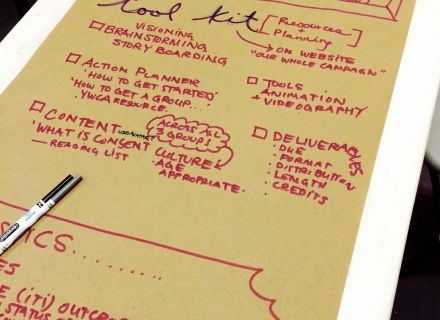 Tool kit [Resources + Planning]
→ ON WEBSITE
"OUR WHOLE CAMPAIGN"
VISIONING
BRAINSTORMING
STORY BOARDING
ACTION PLANNER
'HOW TO GET STARTED'
'HOW TO GET A GROUP...
YWCA RESOURCE.
TOOLS
ANIMATION
+ VIDEOGRAPHY
CONTENT
'WHAT IS CONSENT
— READING LIST
ACROSS ALL
3 GROUPS
CULTURE &
AGE
APPROPRIATE.
DELIVERABLES
· DUE
· FORMAT
· DISTRIBUTION
· LENGTH
· CREDITS
STICS.........
ES
E (iTi) OUTCO
STATUS